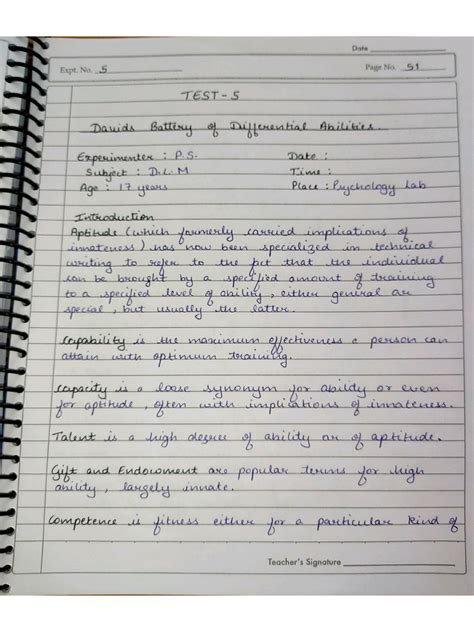 Date
Expt. No. 5
Page No. 51
TEST - 5
Davids Battery of Differential Abilities.
Experimenter : P.S.
Date :
Subject : D.L.M
Time :
Age : 17 years
Place : Psychology Lab
Introduction
Aptitude (which formerly carried implications of
innateness) has now been specialized in technical
writing to refer to the fct that the individual
can be brought by a specified amount of training
to a specified level of ability, either general or
special, but usually the latter.
Capability is the maximum effectiveness a person can
attain with optimum training.
Capacity is a loose synonym for ability or even
for aptitude, often with implications of innateness.
Talent is a high degree of ability or of aptitude.
Gift and Endowment are popular terms for high
ability, largely innate.
Competence is fitness either for a particular kind of
Teacher's Signature